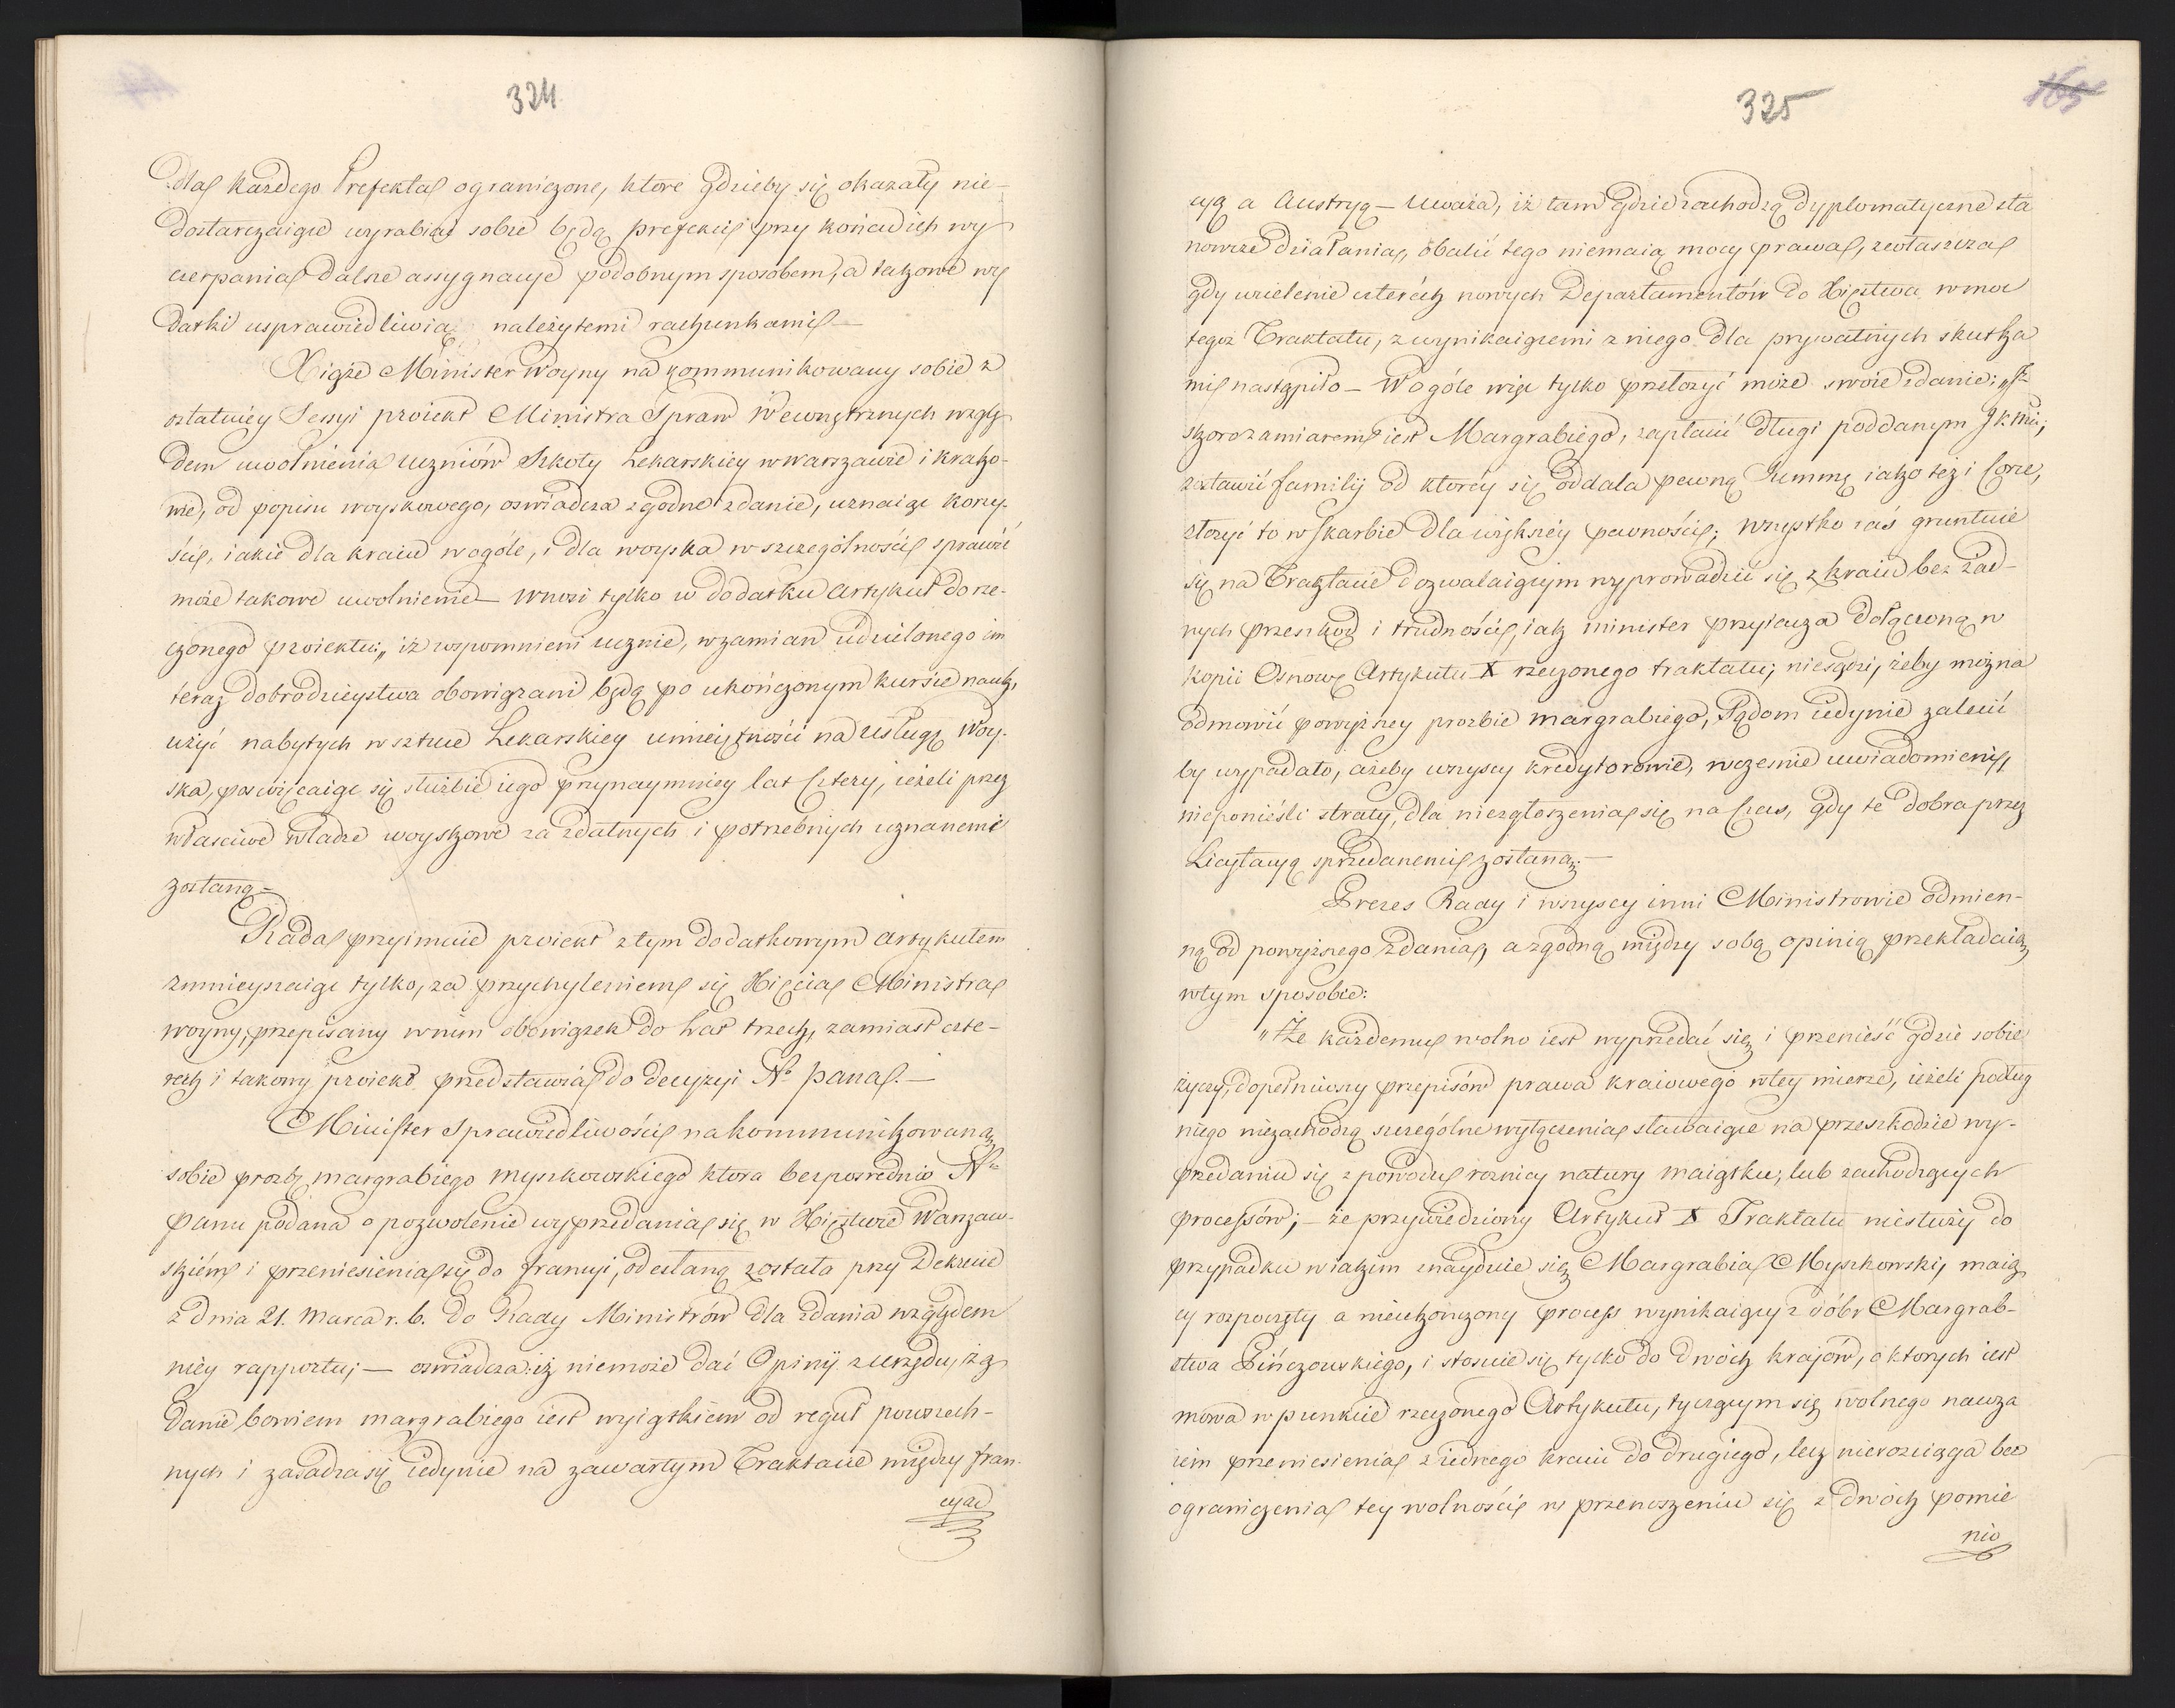 324
dla każdego Prefekta ograniczone, które gdzieby się okazały nie-
dostarczaiące wyrabiać sobie będą prefekci przy końcu ich wy
czerpania dalsze assygnacye podobnym sposobem, a takowe wy
datki usprawiedliwią należytemi rachunkami —
Xiąże Minister Woyny na kommunikowany sobie z
ostatniey Sessyi proiekt Ministra Spraw Wewnętrznych wzglę
dem uwolnienia uczniów Szkoły Lekarskiey w Warszawie i Krako-
wie, od popisu woyskowego, oswiadcza zgodne zdanie, uznaiąc korzy-
ści, iakie dla kraiu w ogóle, i dla woyska w szczególności sprawić
może takowe uwolnienie — wnosi tylko w dodatku artykuł do rze-
czonego proiektu: „iż wspomnieni ucznie, wzamian udzielonego im
teraz dobrodzieystwa obowiązani będą po ukończonym kursie nauk,
użyć nabytych w sztuce Lekarskiey umieiętności na usługę Woy-
ska, poswięcaiąc się służbie iego przynaymniey lat Cztery, ieżeli przez
właściwe władze woyskowe za zdatnych i potrzebnych uznanemi
zostaną —
Rada przyimuie proiekt z tym dodatkowym artykułem
zmnieyszaiąc tylko, za przychyleniem się Xięcia Ministra
woyny, przepisany w nim obowiązek do Lat trzech, zamiast czte-
rech i takowy proiekt przedstawia do decyzyi N. Pana. —
Minister Sprawiedliwości na kommunikowaną
sobie prozbę margrabiego Myszkowskiego która bezposrednio N.
Panu podana o pozwolenie wyprzedania się w Xięztwie Warszaw-
skiém i przeniesienia się do francyi, odesłaną została przy Dekrecie
z dnia 21. Marca r. b. do Rady Ministrów dla zdania względem
niey rapportu; — oswiadcza: iż niemoże dać Opinij z urzędu, żą
danie bowiem margrabiego iest wyiątkiem od reguł powszech-
nych i zasadza się iedynie na zawartym Traktacie między fran-
cyą
325
165
cyą a Austryą — Uważa, iż tam gdzie zachodzą dyplomatyczne sta
nowcze działania, obalić tego niemaią mocy prawa, zwłaszcza
gdy wcielenie czterech nowych Departamentów do Xięztwa w moc
tegoż Traktatu, z wynikaiącemi z niego dla prywatnych skutka
mi nastąpiło — W ogóle więc tylko przełożyć może swoie zdanie: „iż
skoro zamiarem iest Margrabiego, zapłacić długi poddanym JKMci,
zostawić familij od ktorey się oddala pewną Summę iako też i Corce,
złożyć to w skarbie dla większey pewności; wszystko zaś gruntuie
się na Traktacie dozwalaiącym wyprowadzić się z kraiu bez żad-
nych przeszkod i trudności, iak minister przyięcza dołączoną w
kopii Osnowę Artykułu X rzeczonego traktatu; niesądzi, żeby można
odmowić powyższey prozbie margrabiego, Sądom iedynie zalecić
by wypadało, ażeby wszyscy kredytorowie, wcześnie uwiadomieni,
nieponieśli straty, dla niezgłoszenia się na Czas, gdy te dobra przez
Licytacyą sprzedanemi zostaną: —
Prezes Rady i wszyscy inni Ministrowie odmien-
ną od powyższego zdania, a zgodną między sobą opinią przekładaią
w tym sposobie:
„Że każdemu wolno iest wyprzedać się i przenieść gdzie sobie
życzy, dopełniwszy przepisów prawa kraiowego w tey mierze, ieżeli podług
niego niezachodzą szczególne wyłączenia stawaiące na przeszkodzie wy-
przedaniu się z powodu roznicy natury maiątku, lub zachodzących
processów; — że przywiedziony Artykuł X Traktatu niesłuży do
przypadku w iakim znayduie się Margrabia Myszkowski, maią
cy rozpoczęty a nieukończony process wynikaiący z dóbr Margrab-
stwa Pińczowskiego, i stosuie się tylko do dwóch krajów, o ktorych iest
mowa w punkcie rzeczonego Artykułu, tyczącym się wolnego nawza
iem przeniesienia z iednego kraiu do drugiego, lecz nierozciąga bez
ograniczenia tey wolności w przenoszeniu się z dwóch pomie
nio